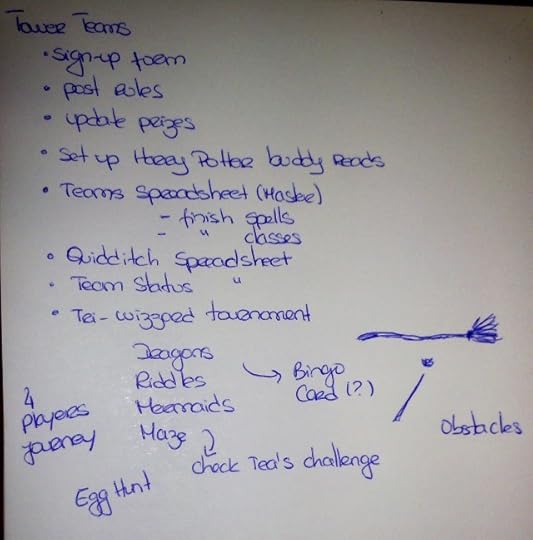 Tower Teams
• Sign-up form
• post rules
• update prizes
• Set up Harry Potter buddy Reads
• Teams Spreadsheet (Master)
- finish spells
- " classes
• Quidditch Spreadsheet
• Team Status "
• Tri-wizzard tournament
Dragons
Riddles
Mermaids
Maze
Bingo
Card (?)
4
players
journey
check Tea's challenge
Egg Hunt
Obstacles